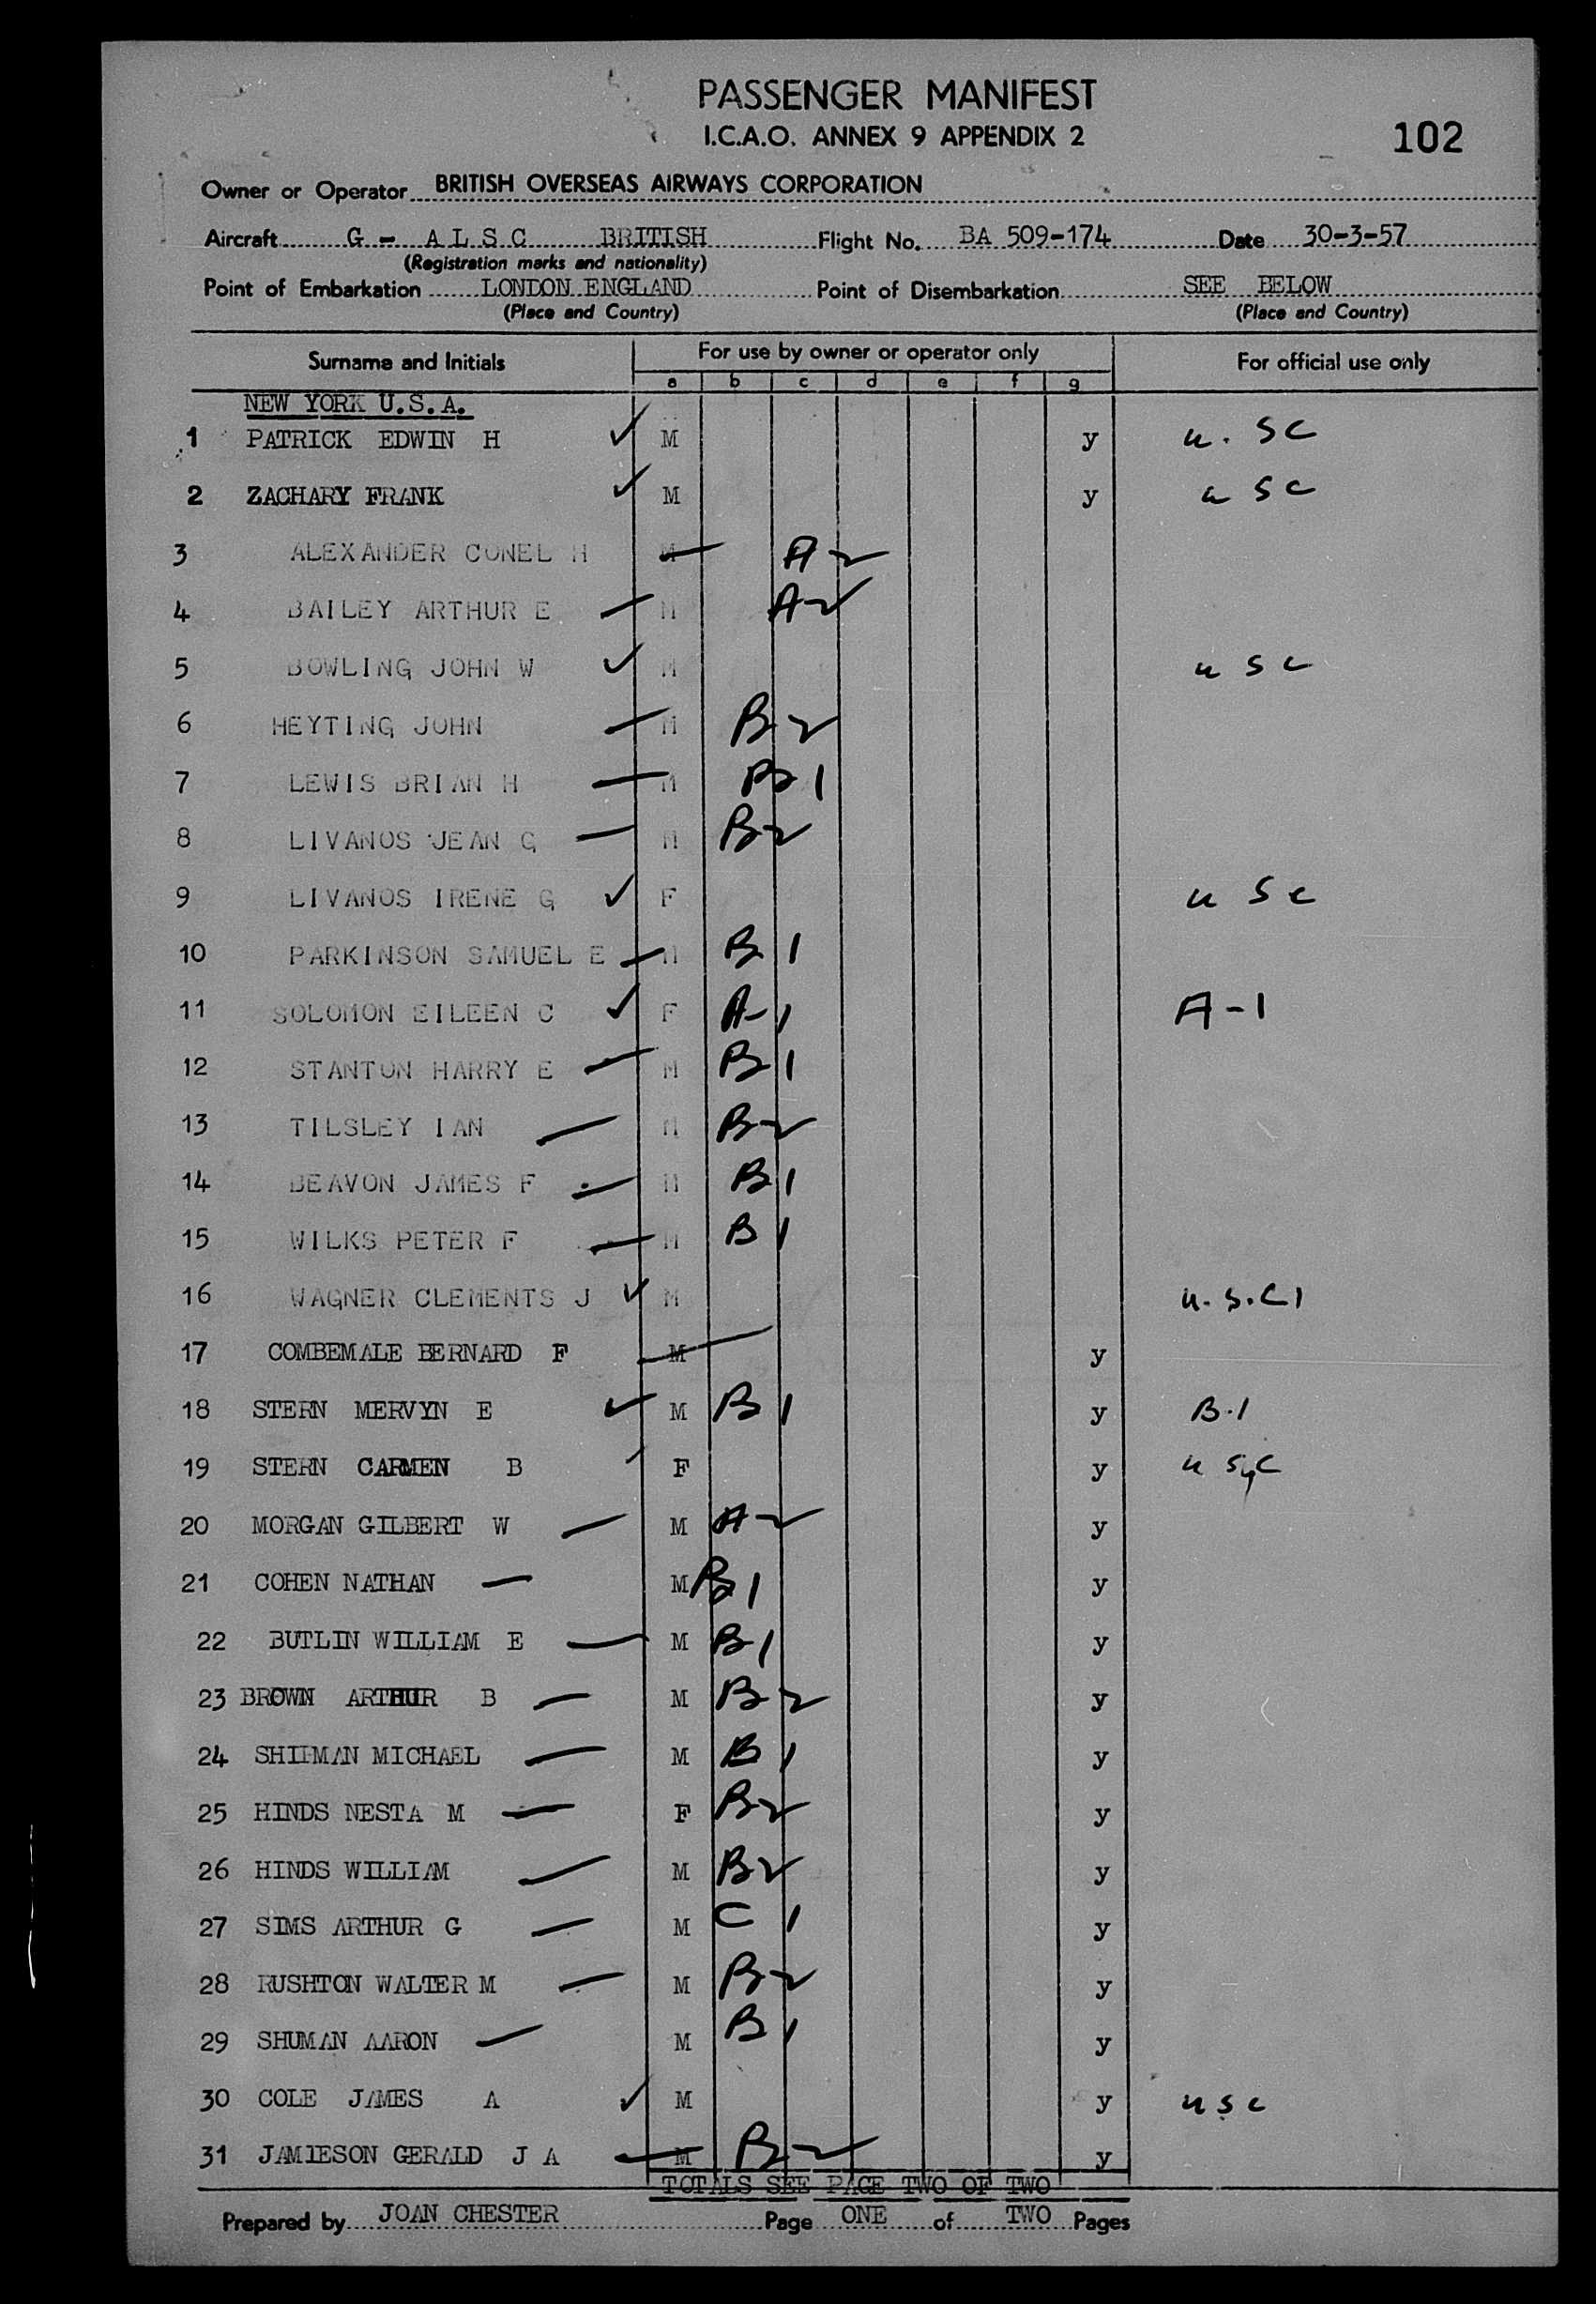 PASSENGER MANIFEST
I.C.A.O. ANNEX 9 APPENDIX 2
102
Owner or Operator BRITISH OVERSEAS AIRWAYS CORPORATION
Aircraft G - A L S C BRITISH Flight No. BA 509-174 Date 30-3-57
(Registration marks and nationality)
Point of Embarkation LONDON ENGLAND Point of Disembarkation SEE BELOW
(Place and Country) (Place and Country)
Surname and Initials For use by owner or operator only For official use only
a b c d e f g
NEW YORK U.S.A.
1 PATRICK EDWIN H ✓ M y u. s c
2 ZACHARY FRANK ✓ M y u s c
3 ALEXANDER CONEL H M A 2
4 BAILEY ARTHUR E — M A 2
5 BOWLING JOHN W ✓ M u s c
6 HEYTING JOHN — M B 2
7 LEWIS BRIAN H — M B 1
8 LIVANOS JEAN G — M B 2
9 LIVANOS IRENE G ✓ F u s c
10 PARKINSON SAMUEL E — M B 1
11 SOLOMON EILEEN C ✓ F A-1 A-1
12 STANTON HARRY E — M B 1
13 TILSLEY IAN — M B 2
14 BEAVON JAMES F — M B 1
15 WILKS PETER F — M B 1
16 WAGNER CLEMENTS J ✓ M u. s. c 1
17 COMBEMALE BERNARD F M y
18 STERN MERVYN E ✓ M B 1 y B.1
19 STERN CARMEN B F y u s c
20 MORGAN GILBERT W — M A 2 y
21 COHEN NATHAN — M B 1 y
22 BUTLIN WILLIAM E — M B 1 y
23 BROWN ARTHUR B — M B 2 y
24 MICHAEL — M B 1 y
25 HINDS NESTA M — F B 2 y
26 HINDS WILLIAM — M B 2 y
27 SIMS ARTHUR G — M C 1 y
28 RUSHTON WALTER M — M B 2 y
29 SHUMAN AARON — M B 1 y
30 COLE JAMES A ✓ M y u s c
31 JAMIESON GERALD J A — M B 2 y
TOTALS SEE PAGE TWO OF TWO
Prepared by JOAN CHESTER Page ONE of TWO Pages